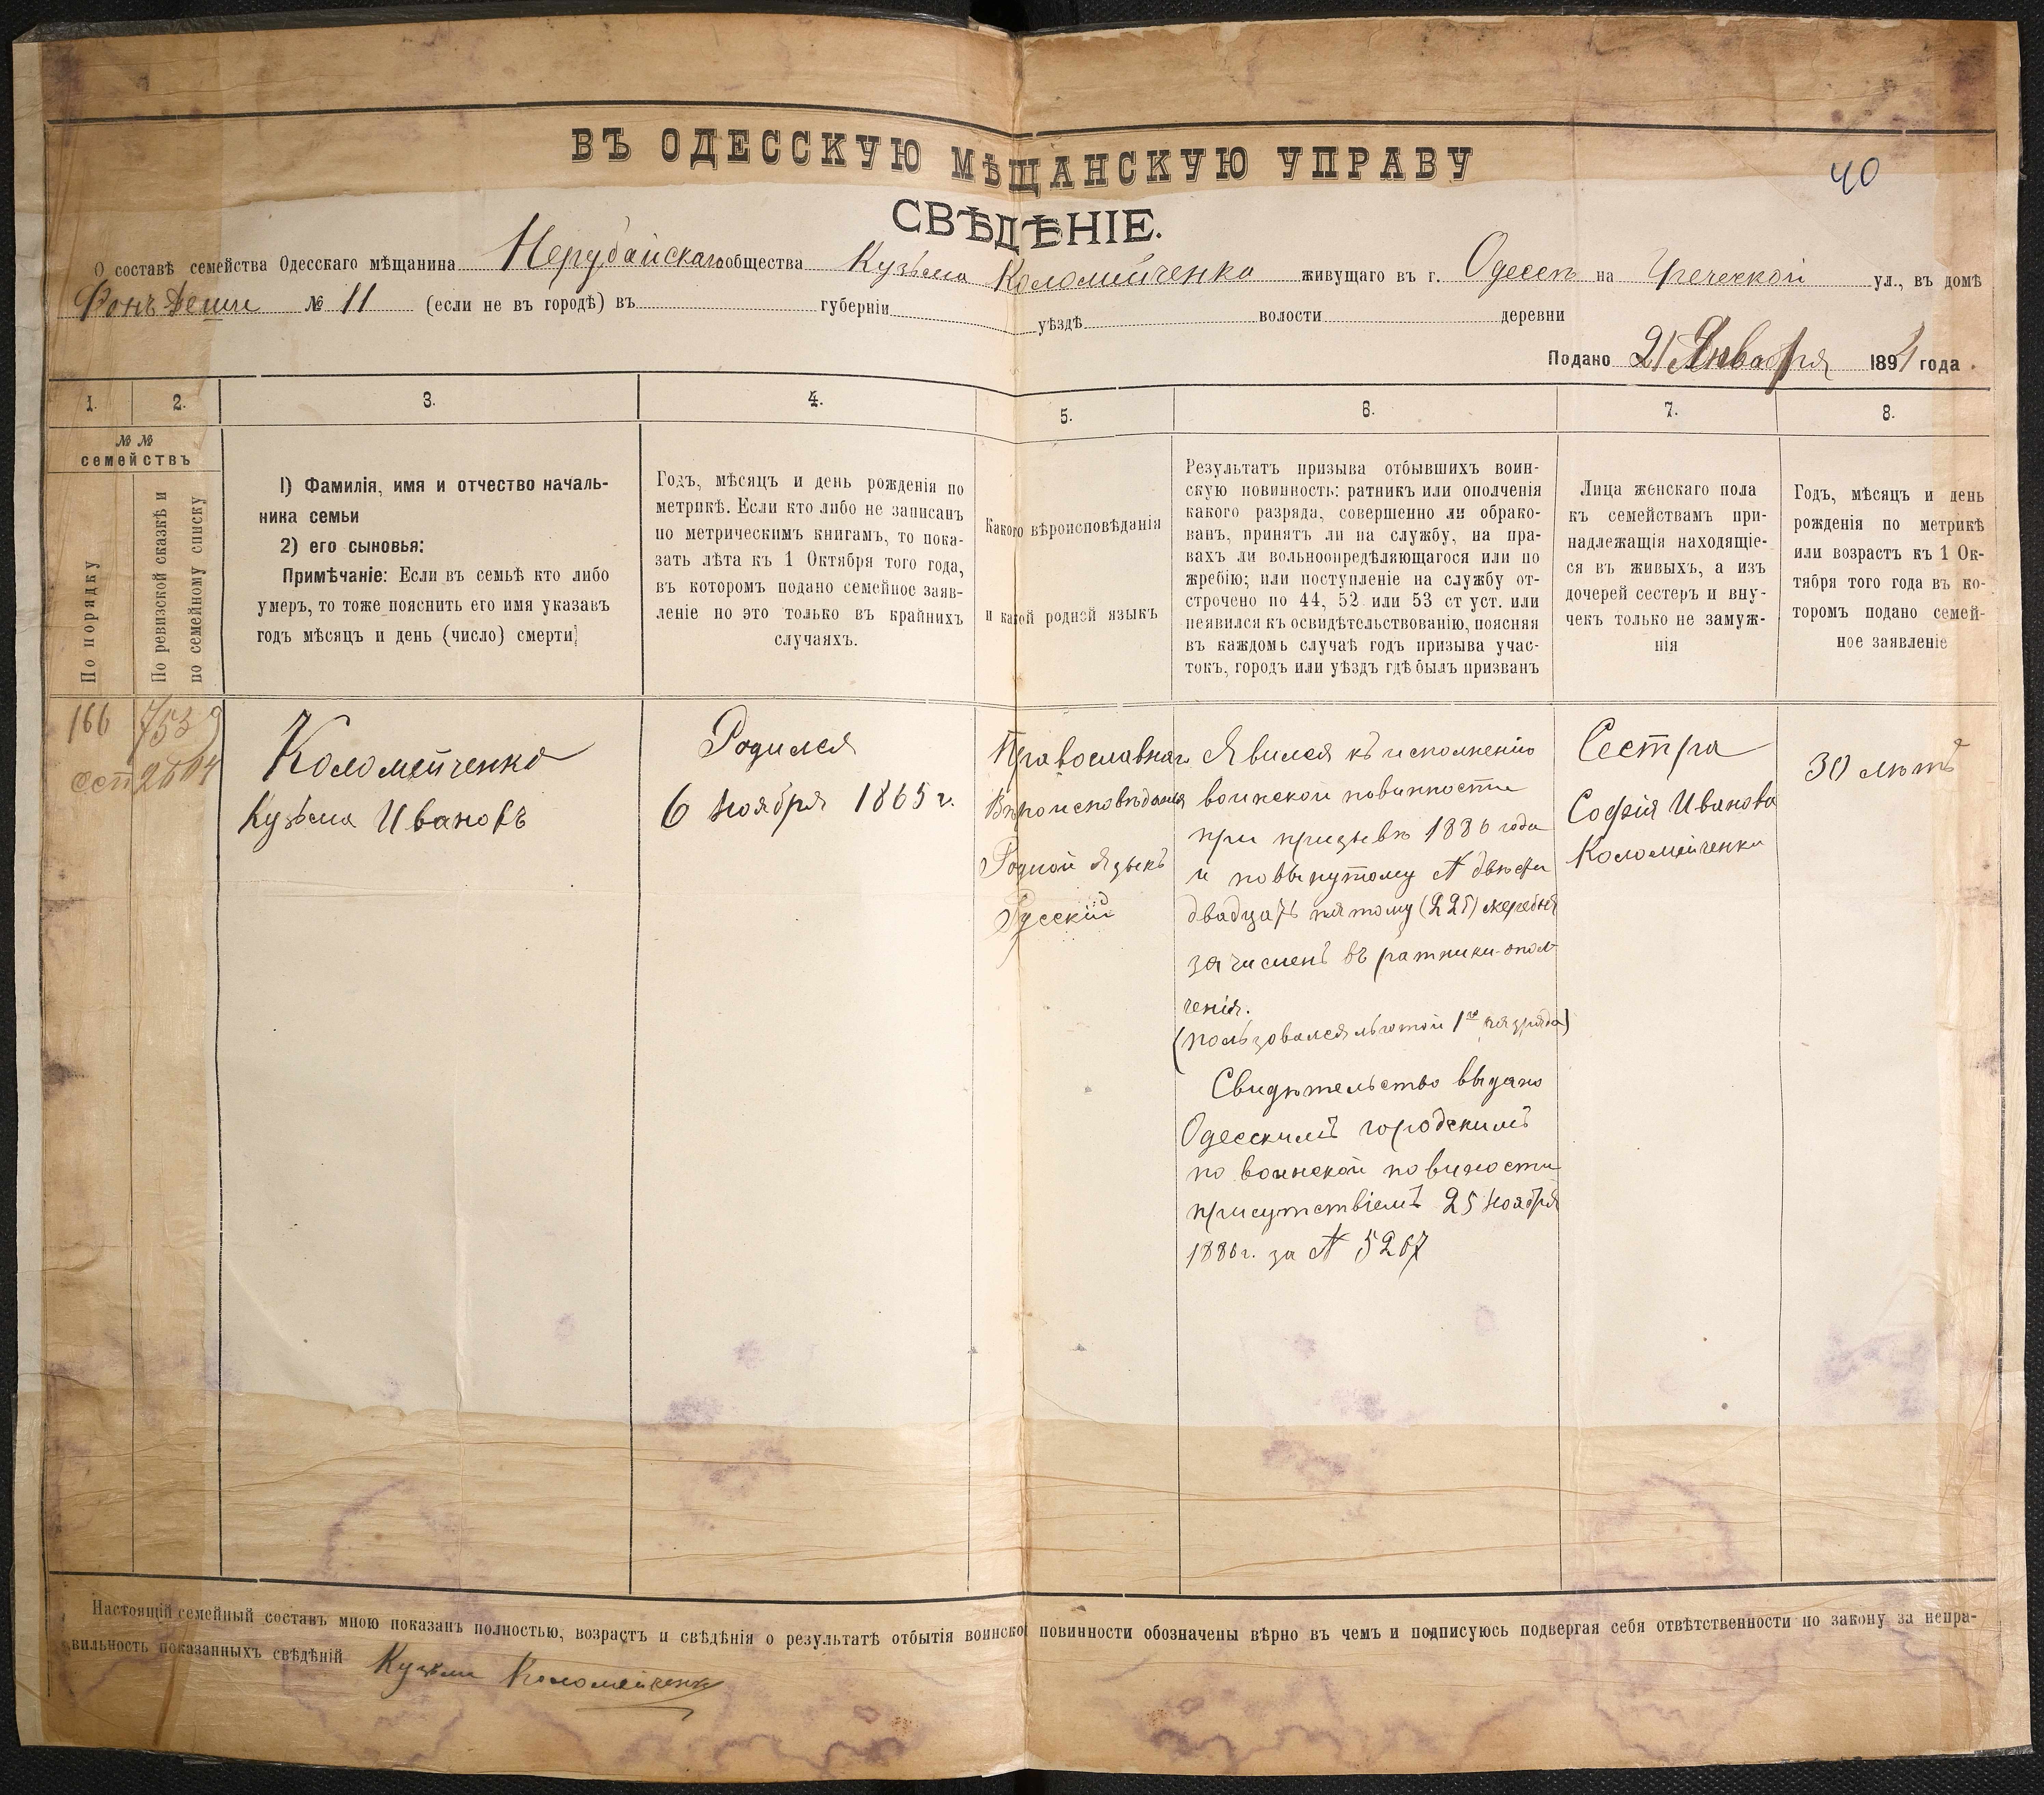 ВЪ ОДЕССКУЮ МѢЩАНСКУЮ УПРАВУ
40
СВѢДѢНІЕ.
О составѣ семейства Одесскаго мѣщанина Нерубайскаго общества Кузьма Коломейченко живущаго въ г. Одессѣ на Греческой ул., въ домѣ
Фонъ Деши № 11 (если не въ городѣ) въ губерніи уѣздѣ волости деревни
Подано 21 Января 1891 года.
1. 2. 3. 4. 5. 6. 7. 8.
№ №
семействъ
По порядку
По ревизской сказкѣ и
по семейному списку
1) Фамилія, имя и отчество началь-
ника семьи
2) его сыновья:
Примѣчаніе: Если въ семьѣ кто либо
умеръ, то тоже пояснить его имя указавъ
годъ мѣсяцъ и день (число) смерти)
Годъ, мѣсяцъ и день рожденія по
метрикѣ. Если кто либо не записанъ
по метрическимъ книгамъ, то пока-
зать лѣта къ 1 Октября того года,
въ которомъ подано семейное заяв-
леніе но это только въ крайнихъ
случаяхъ.
Какого вѣроисповѣданія
и какой родной языкъ
Результатъ призыва отбывшихъ воин-
скую повинность: ратникъ или ополченія
какого разряда, совершенно ли обрако-
ванъ, принятъ ли на службу, на пра-
вахъ ли вольноопредѣляющагося или по
жребію; или поступленіе на службу от-
строчено по 44, 52 или 53 ст уст. или
неявился къ освидѣтельствованію, поясняя
въ каждомъ случаѣ годъ призыва учас-
токъ, городъ или уѣздъ гдѣ былъ призванъ
Лица женскаго пола
къ семействамъ при-
надлежащія находящіе-
ся въ живыхъ, а изъ
дочерей сестеръ и вну-
чекъ только не замуж-
нія
Годъ, мѣсяцъ и день
рожденія по метрикѣ
или возрастъ къ 1 Ок-
тября того года въ ко-
торомъ подано семей-
ное заявленіе
166
Коломейченко
Кузьма Ивановъ
Родился
6 Ноября 1865 г.
Православнаго
Вѣроисповѣданія
Родной Языкъ
Русскій
Явился къ исполненію
воинской повинности
при призывѣ 1886 года
и по вынутому № двѣсти
двадцать пятому (225) жеребью
зачисленъ въ ратники опол-
ченія.
(пользовался льготой 1го разряда)
Свидѣтельство выдано
Одесскимъ городскимъ
по воинской повиности
присутствіемъ 25 Ноября
1886 г. за № 5267
Сестра
Софія Иванова
Коломейченко
30 лѣтъ
Настоящій семейный составъ мною показанъ полностью, возрастъ и свѣдѣнія о результатѣ отбытія воинской повинности обозначены вѣрно въ чемъ и подписуюсь подвергая себя отвѣтственности по закону за непра-
вильность показанныхъ свѣдѣній Кузьма Коломейченко